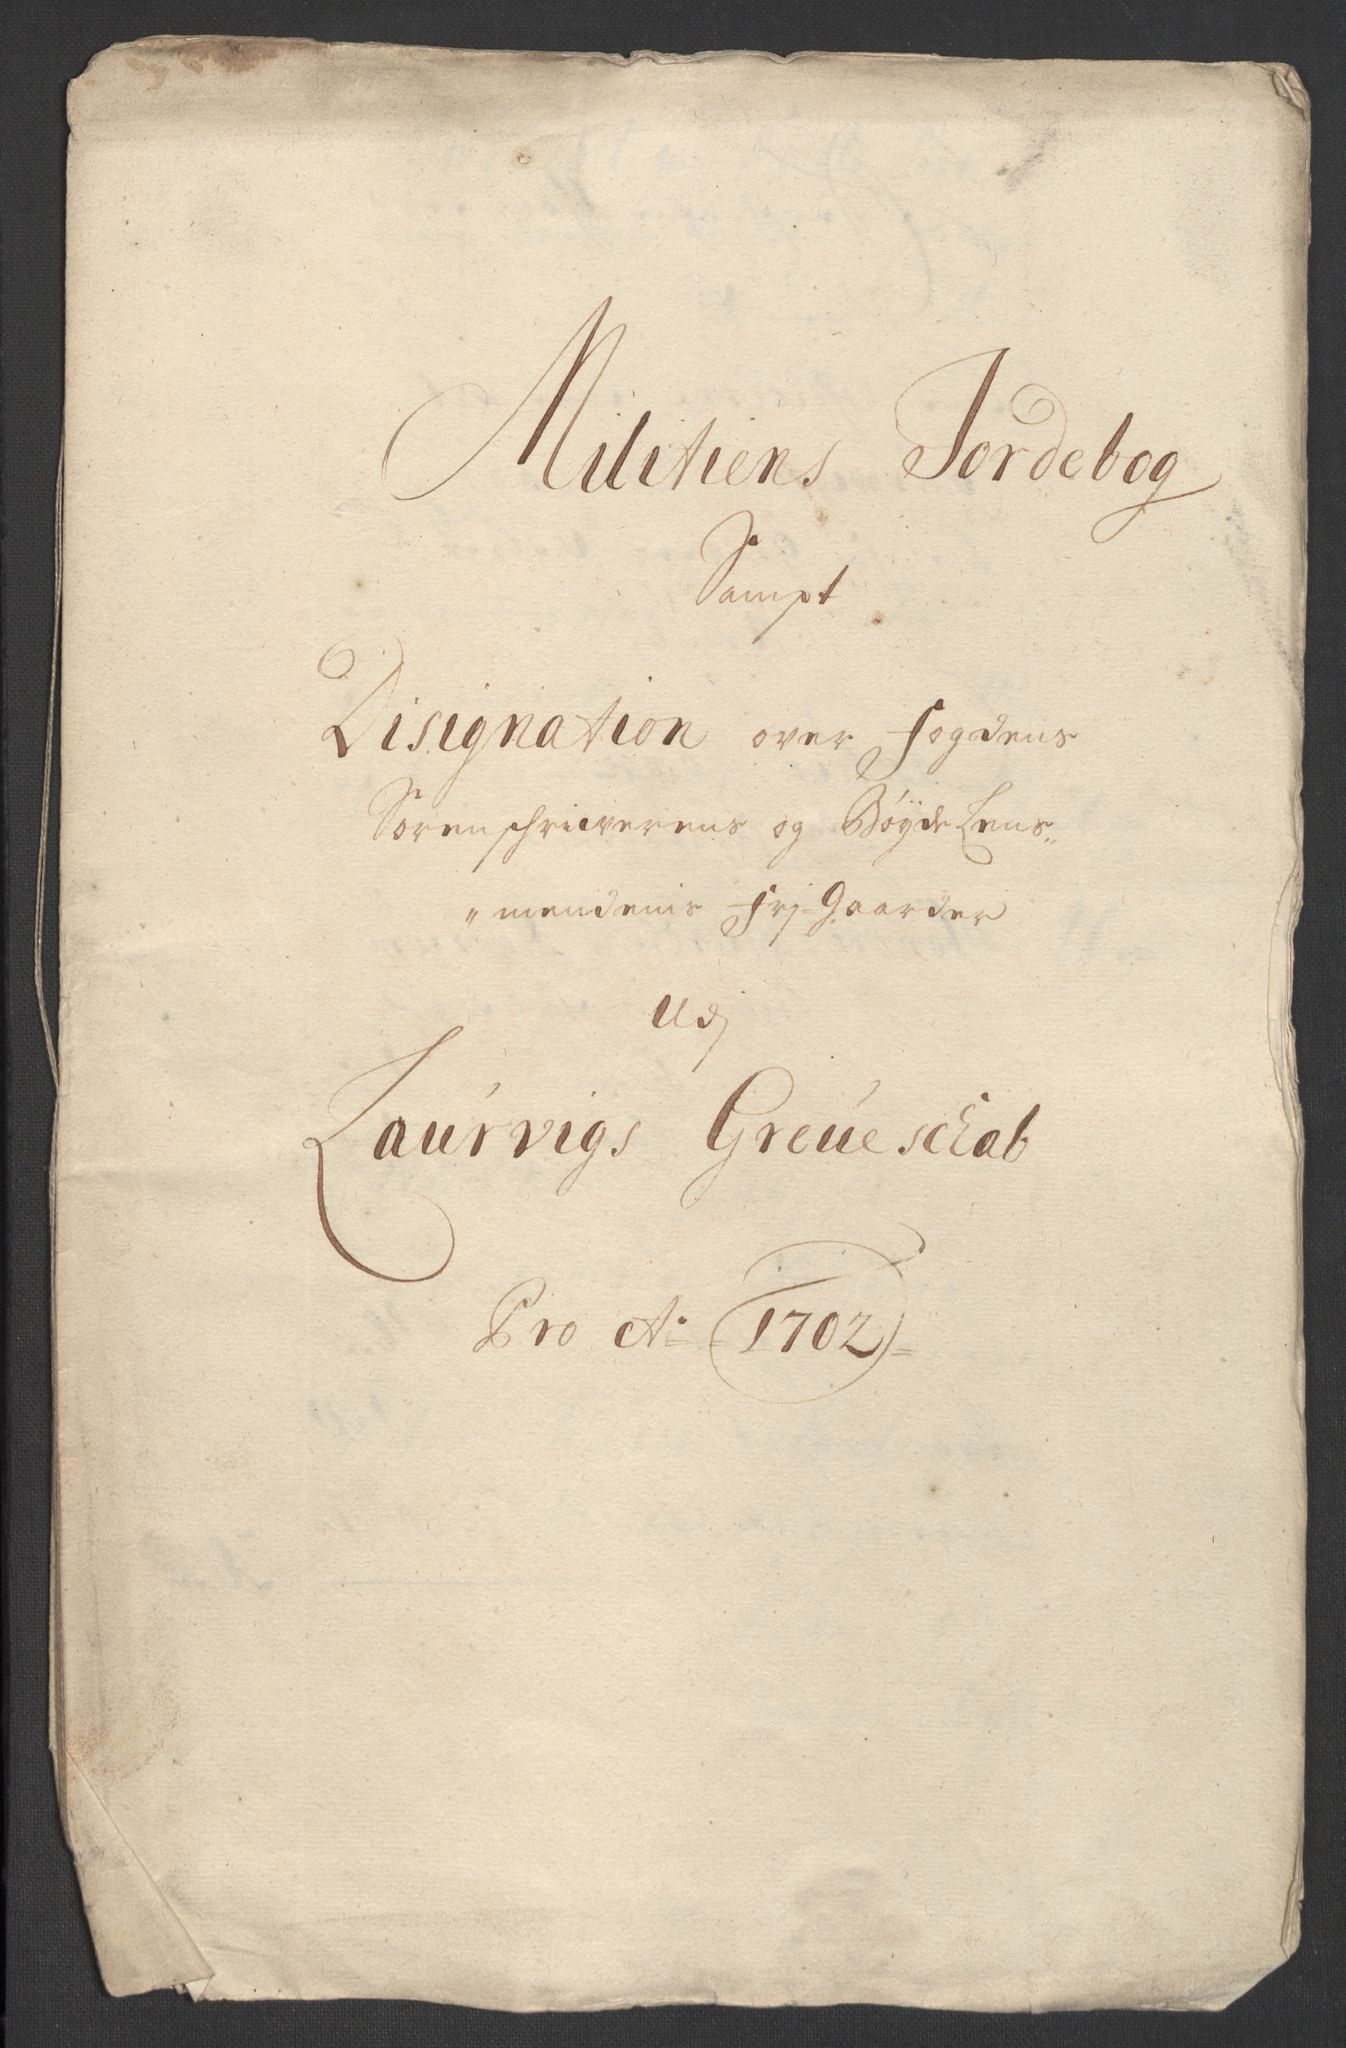 Militiens Jordebog
Sampt
Disignation over fogdens
Sorenschriwerens og Bøyde Lens„
„mendenis Frj-Gaarder
Udj
Laurvigs Greueschab
Pro Ao 1702